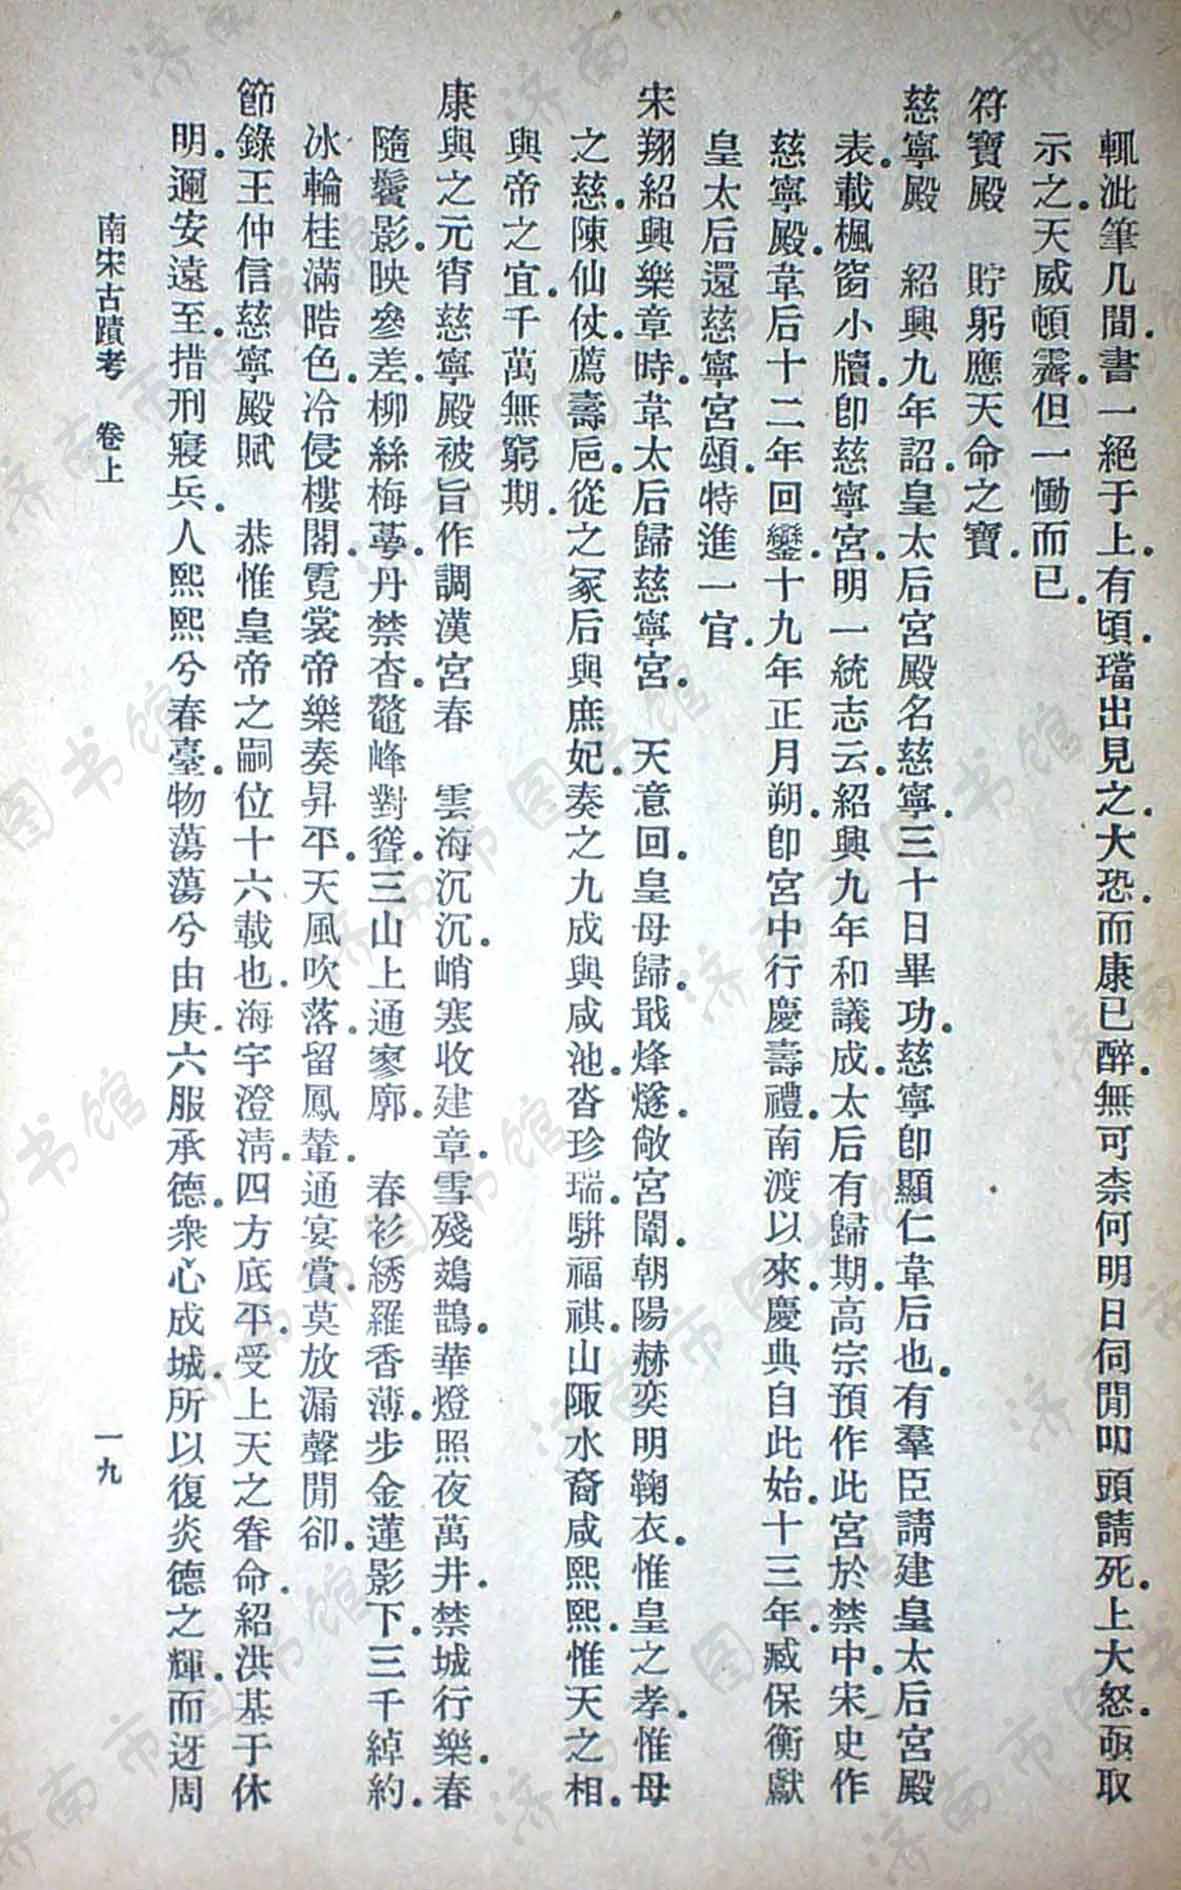 輒泚筆几間．書一絕于上．有頃．璫出見之．大恐．而康已醉．無可柰何．明日伺閒叩頭請死．上大怒．亟取
示之．天威頓霽．但一慟而已．
符寶殿　貯躬應天命之寶．
慈寧殿　紹興九年詔．皇太后宮殿名慈寧．三十日畢功．慈寧卽顯仁韋后也．有羣臣請建皇太后宮殿
表．載楓窗小牘．卽慈寧宮．明一統志云．紹興九年和議成．太后有歸期．高宗預作此宮於禁中．宋史作
慈寧殿．韋后十二年回鑾．十九年正月朔．卽宮中行慶壽禮．南渡以來．慶典自此始．十三年．臧保衡獻
皇太后還慈寧宮頌．特進一官．
宋翔紹興樂章時．韋太后歸慈寧宮．　天意回．皇母歸．戢烽燧．敞宮闈．朝陽赫奕明鞠衣．惟皇之孝．惟母
之慈．陳仙仗．薦壽巵．從之冢后與庶妃．奏之九成與咸池．沓珍瑞．駢福祺．山陬水裔咸熙熙．惟天之相．
與帝之宜．千萬無窮期．
康與之元宵慈寧殿被旨作調漢宮春　雲海沉沉．峭寒收建章．雪殘鳷鵲．華燈照夜萬井．禁城行樂．春
隨鬢影．映參差．柳絲梅萼．丹禁杳．鼇峰對聳．三山上通寥廓．　春衫綉羅香薄．步金蓮影下．三千綽約．
冰輪桂滿．晧色．冷侵樓閣．霓裳帝樂．奏昇平．天風吹落．留鳳輦．通宴賞．莫放漏聲閒卻．
節錄王仲信慈寧殿賦　恭惟皇帝之嗣位十六載也．海宇澄淸．四方底平．受上天之眷命．紹洪基于休
明．邇安遠至．措刑寢兵．人熙熙兮春臺．物蕩蕩兮由庚．六服承德．衆心成城．所以復炎德之輝．而迓周
南宋古蹟考　卷上　一九